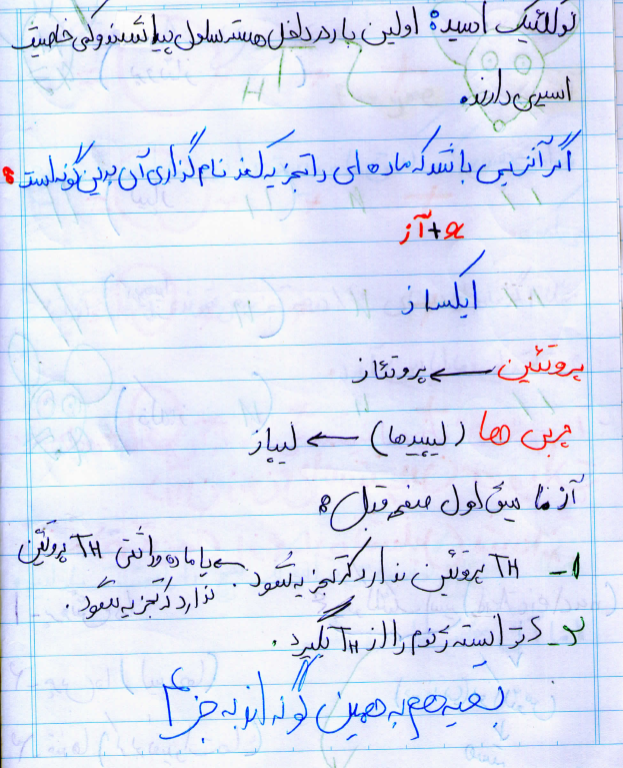 نوکلئیک اسید: اولین بار در داخل هسته سلول پیدا شدند و کمی خاصیت
اسیدی دارند.
اگر آنزیمی باشد که ماده ای را تجزیه کند نام گذاری آن بدین گونه است:
x + آز
ایکساز
پروتئین ← پروتئاز
چربی ها (لیپیدها) ← لیپاز
آزمایش اول صفحه قبل:
1- TH پروتئین ندارد که تجزیه شود. ← یا ماده وراثتی TH پروتئین
ندارد که تجزیه شود.
2- S توانسته ژنوم را از TH بگیرد.
بقیه هم به همین گونه اند به جز 4